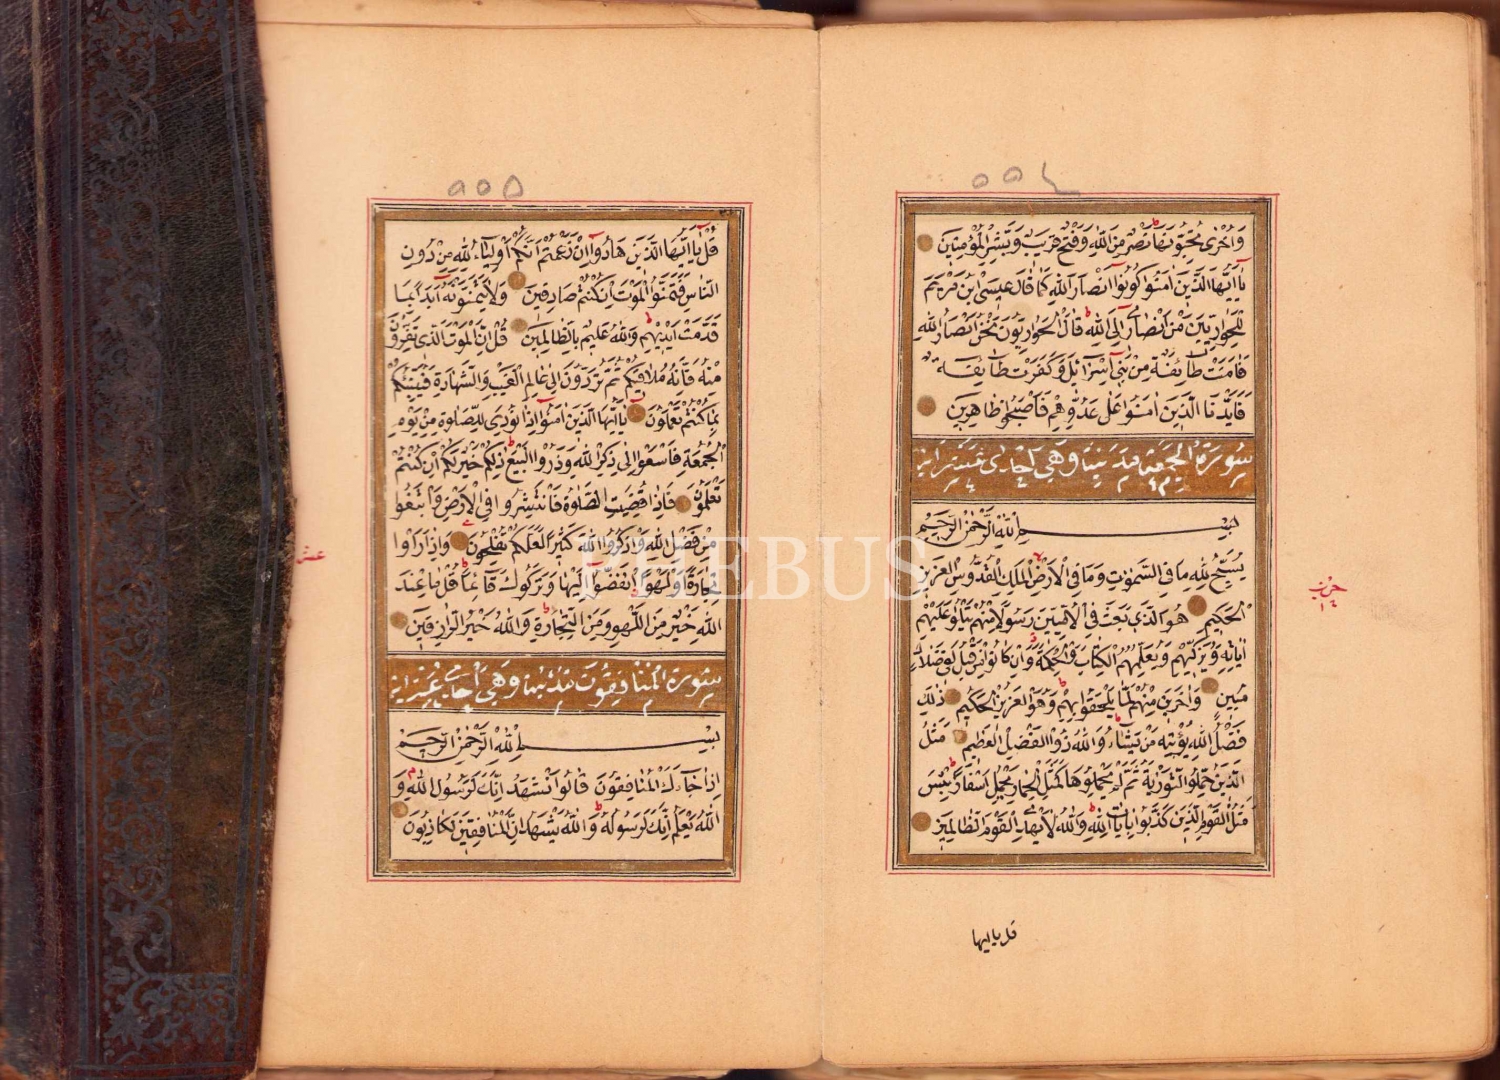 ٥٥٤
وَاُخْرٰى تُحِبُّونَهَا نَصْرٌ مِنَ اللّٰهِ وَفَتْحٌ قَرِيبٌ وَبَشِّرِ الْمُؤْمِنِينَ
يَا اَيُّهَا الَّذِينَ اٰمَنُوا كُونُوا اَنْصَارَ اللّٰهِ كَمَا قَالَ عِيسَى ابْنُ مَرْيَمَ
لِلْحَوَارِيّٖنَ مَنْ اَنْصَارٖى اِلَى اللّٰهِ قَالَ الْحَوَارِيُّونَ نَحْنُ اَنْصَارُ اللّٰهِ
فَاٰمَنَتْ طَائِفَةٌ مِنْ بَنِى اِسْرَائِلَ وَكَفَرَتْ طَائِفَةٌ
فَاَيَّدْنَا الَّذِينَ اٰمَنُوا عَلٰى عَدُوِّهِمْ فَاَصْبَحُوا ظَاهِرِينَ
سورة الجمعة مدينة وهى احدى عشر اية
بِسْــــمِ اللّٰهِ الرَّحْمٰنِ الرَّحِيمِ
يُسَبِّحُ لِلّٰهِ مَا فِى السَّمٰوَاتِ وَمَا فِى الْاَرْضِ الْمَلِكِ الْقُدُّوسِ الْعَزِيزِ
الْحَكِيمِ هُوَ الَّذِى بَعَثَ فِى الْاُمِّيّٖنَ رَسُولًا مِنْهُمْ يَتْلُوا عَلَيْهِمْ
اٰيَاتِهِ وَيُزَكِّيهِمْ وَيُعَلِّمُهُمُ الْكِتَابَ وَالْحِكْمَةَ وَاِنْ كَانُوا مِنْ قَبْلُ لَفِى ضَلَالٍ
مُبِينٍ وَاٰخَرِينَ مِنْهُمْ لَمَّا يَلْحَقُوا بِهِمْ وَهُوَ الْعَزِيزُ الْحَكِيمُ ذٰلِكَ
فَضْلُ اللّٰهِ يُؤْتِيهِ مَنْ يَشَاءُ وَاللّٰهُ ذُوالْفَضْلِ الْعَظِيمِ مَثَلُ
الَّذِينَ حُمِّلُوا التَّوْرٰيةَ ثُمَّ لَمْ يَحْمِلُوهَا كَمَثَلِ الْحِمَارِ يَحْمِلُ اَسْفَارًا بِئْسَ
مَثَلُ الْقَوْمِ الَّذِينَ كَذَّبُوا بِاٰيَاتِ اللّٰهِ وَاللّٰهُ لَا يَهْدِى الْقَوْمَ الظَّالِمِينَ
قل يا ايها
حزب
٥٥٥
قُلْ يَا اَيُّهَا الَّذِينَ هَادُوا اِنْ زَعَمْتُمْ اَنَّكُمْ اَوْلِيَاءُ لِلّٰهِ مِنْ دُونِ
النَّاسِ فَتَمَنَّوُا الْمَوْتَ اِنْ كُنْتُمْ صَادِقِينَ وَلَا يَتَمَنَّوْنَهُ اَبَدًا بِمَا
قَدَّمَتْ اَيْدِيهِمْ وَاللّٰهُ عَلِيمٌ بِالظَّالِمِينَ قُلْ اِنَّ الْمَوْتَ الَّذِى تَفِرُّونَ
مِنْهُ فَاِنَّهُ مُلَاقِيكُمْ ثُمَّ تُرَدُّونَ اِلٰى عَالِمِ الْغَيْبِ وَالشَّهَادَةِ فَيُنَبِّئُكُمْ
بِمَا كُنْتُمْ تَعْمَلُونَ يَا اَيُّهَا الَّذِينَ اٰمَنُوا اِذَا نُودِىَ لِلصَّلٰوةِ مِنْ يَوْمِ
الْجُمُعَةِ فَاسْعَوْا اِلٰى ذِكْرِ اللّٰهِ وَذَرُوا الْبَيْعَ ذٰلِكُمْ خَيْرٌ لَكُمْ اِنْ كُنْتُمْ
تَعْلَمُونَ فَاِذَا قُضِيَتِ الصَّلٰوةُ فَانْتَشِرُوا فِى الْاَرْضِ وَابْتَغُوا
مِنْ فَضْلِ اللّٰهِ وَاذْكُرُوا اللّٰهَ كَثِيرًا لَعَلَّكُمْ تُفْلِحُونَ وَاِذَا رَاَوْا
تِجَارَةً اَوْ لَهْوًا انْفَضُّوا اِلَيْهَا وَتَرَكُوكَ قَائِمًا قُلْ مَا عِنْدَ
اللّٰهِ خَيْرٌ مِنَ اللَّهْوِ وَمِنَ التِّجَارَةِ وَاللّٰهُ خَيْرُ الرَّازِقِينَ
سورة المنافقون مدينة وهى احدى عشر اية
بِسْــــمِ اللّٰهِ الرَّحْمٰنِ الرَّحِيمِ
اِذَا جَاءَكَ الْمُنَافِقُونَ قَالُوا نَشْهَدُ اِنَّكَ لَرَسُولُ اللّٰهِ وَ
اللّٰهُ يَعْلَمُ اِنَّكَ لَرَسُولُهُ وَاللّٰهُ يَشْهَدُ اِنَّ الْمُنَافِقِينَ لَكَاذِبُونَ
عشر
PHEBUS